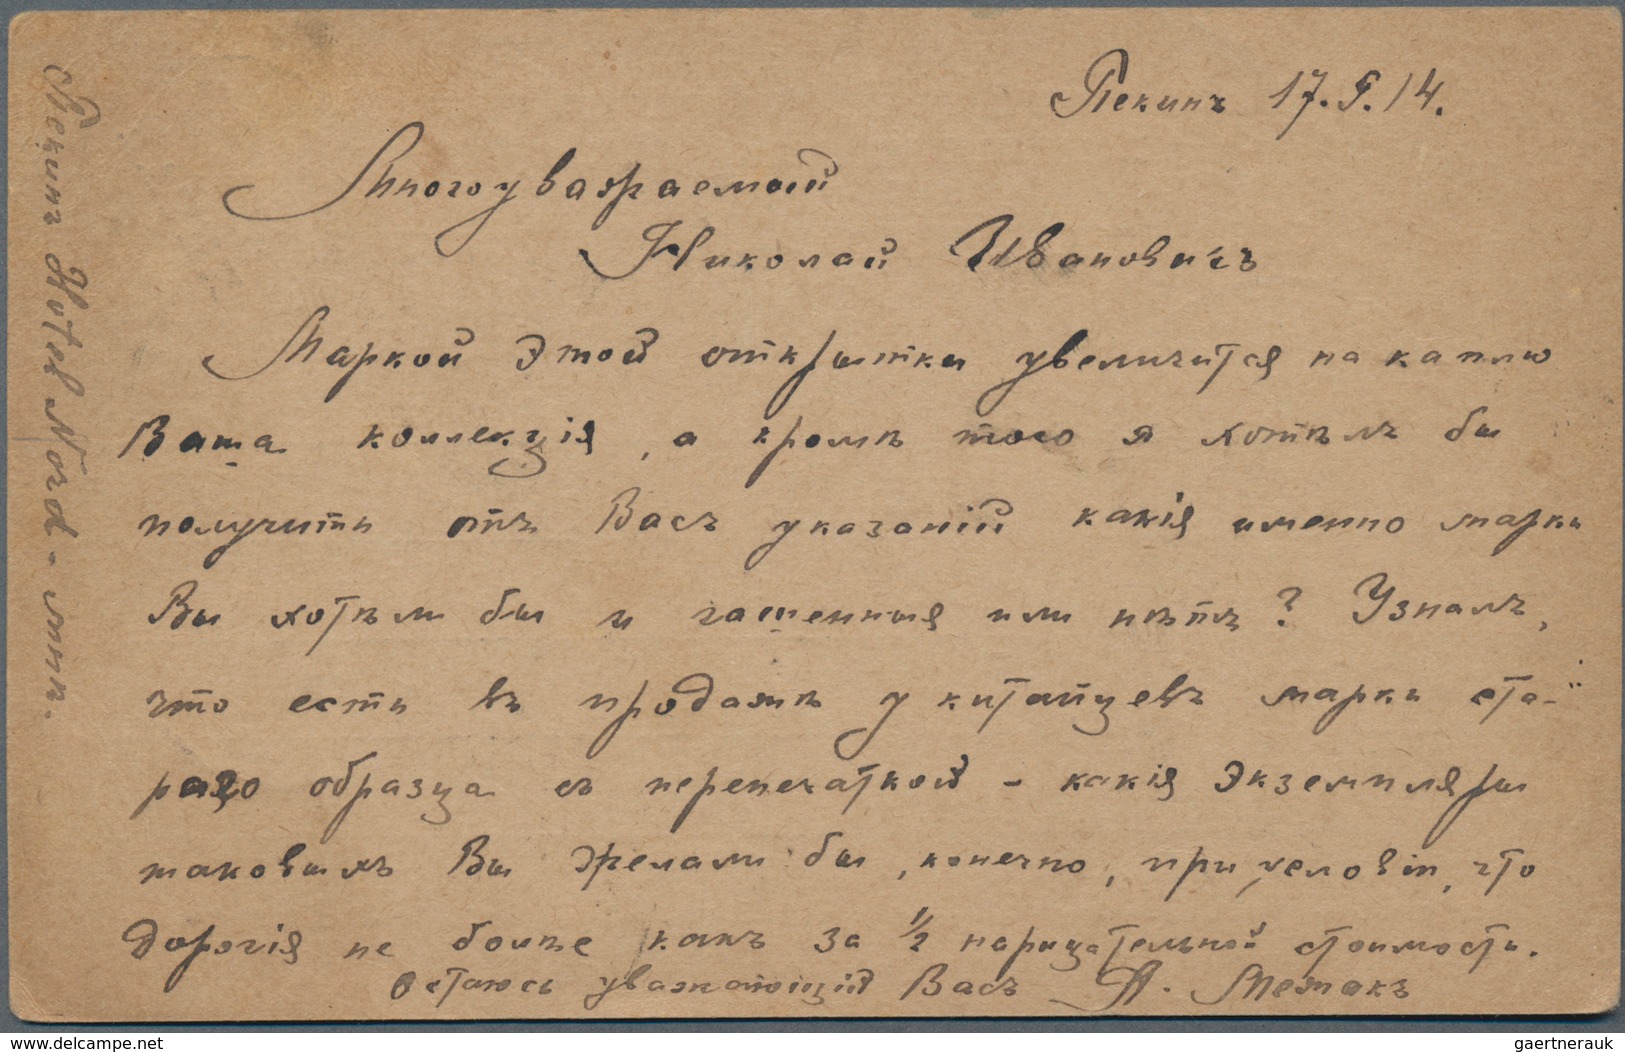 Пекинъ 17.I.14.
Многоуважаемый
Николай Ивановичъ
Маркой этой открытки увеличится на каплю
Ваша коллекція, а кромѣ того я хотѣлъ бы
получить отъ Васъ указаній какія именно марки
Вы хотѣли бы и гашенныя или нѣтъ? Узналъ,
что есть въ продажѣ у китайцевъ марки ста-
раго образца съ перепечаткой - какія экземпляры
таковыхъ Вы желали бы, конечно, при условіи, что
дорогія не болѣе какъ за 1/2 нарицательной стоимости.
Остаюсь уважающій Васъ А.
Пекинъ Hotel Nord -
www.delcampe.net
gaertnerauk